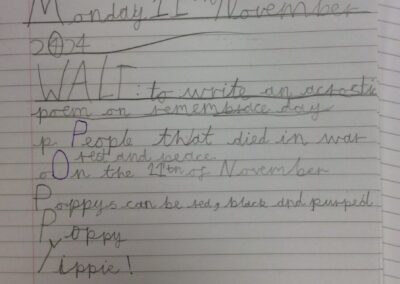 Monday 11th November
2024
WALT: to write an acrostic
poem on remembrace day
p People that died in war
red and peace
o On the 11th of November
Poppys can be red, black and purpel
Poppy
Yippie!